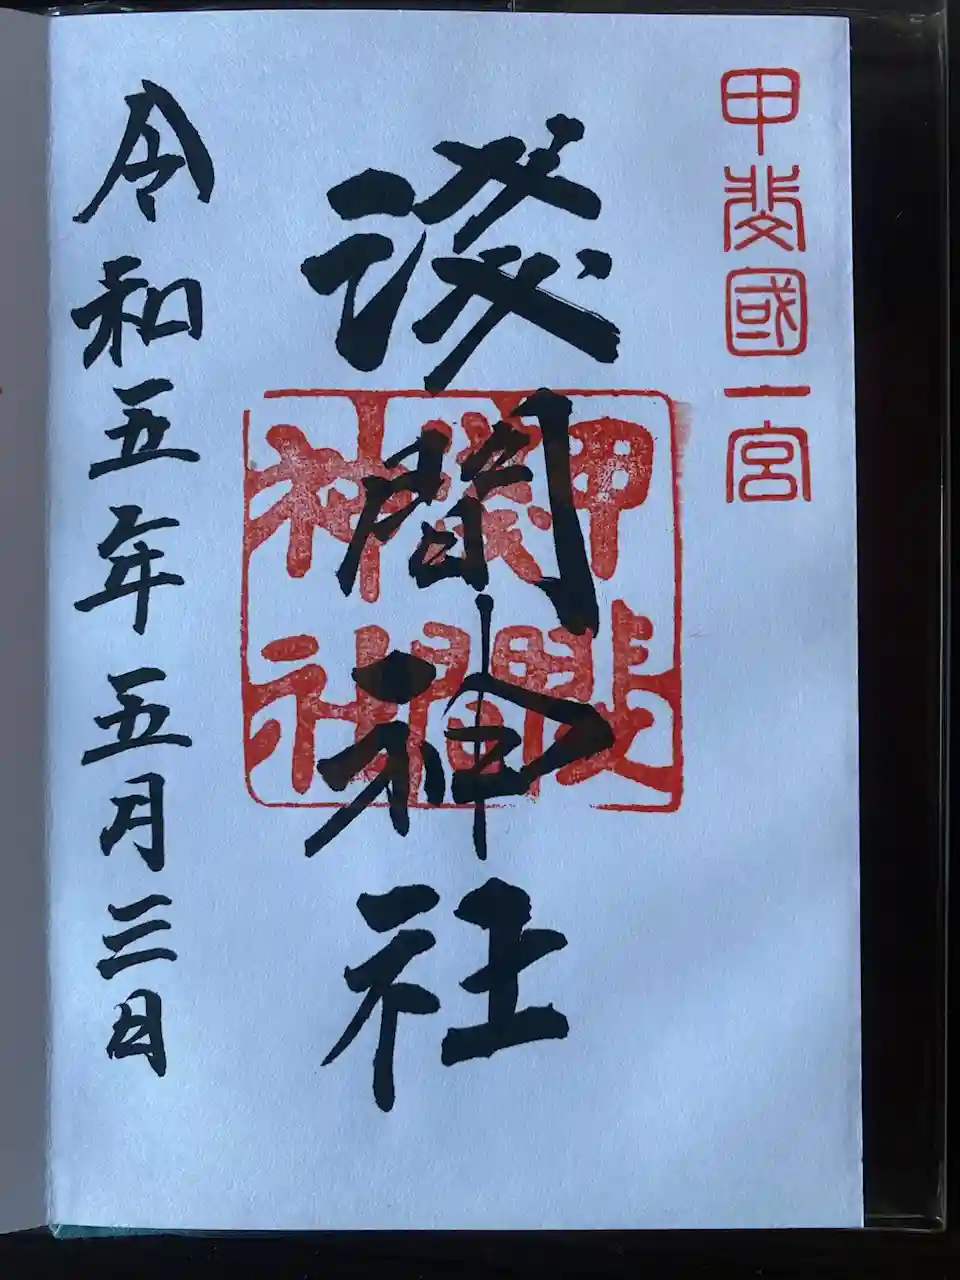 甲斐國一宮
淺間神社
甲斐淺間神社
令和五年五月三日